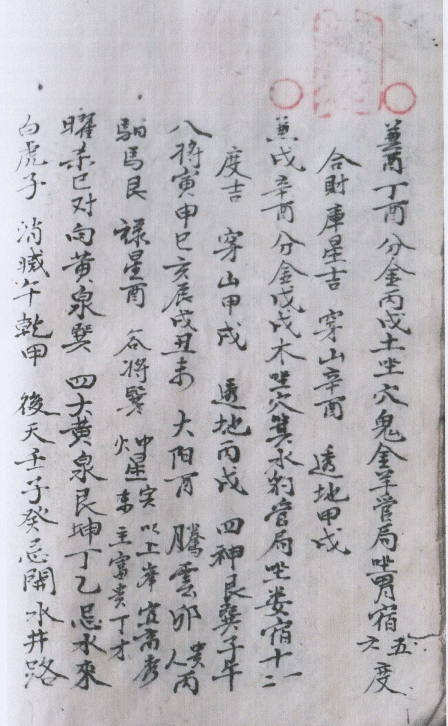 兼酉丁酉分金丙戌土坐穴鬼金羊管局坐胃宿五六度
合財庫星吉 穿山辛酉 透地甲戌
兼戌辛酉分金戊戌木坐穴箕水豹管局坐娄宿十一二
度吉 穿山甲戌 透地丙戌 四神艮巽子午
八将寅申巳亥辰戌丑未 大阳酉 騰雲卯 貴人丙
馹馬艮 禄星酉 谷将巽 中星寅火未 以上峯宜高秀主富貴丁才
曜杀巳对向黄泉巽 四大黄泉艮坤丁乙忌水來
白虎子 消滅午乾甲 後天壬子癸忌開水井路